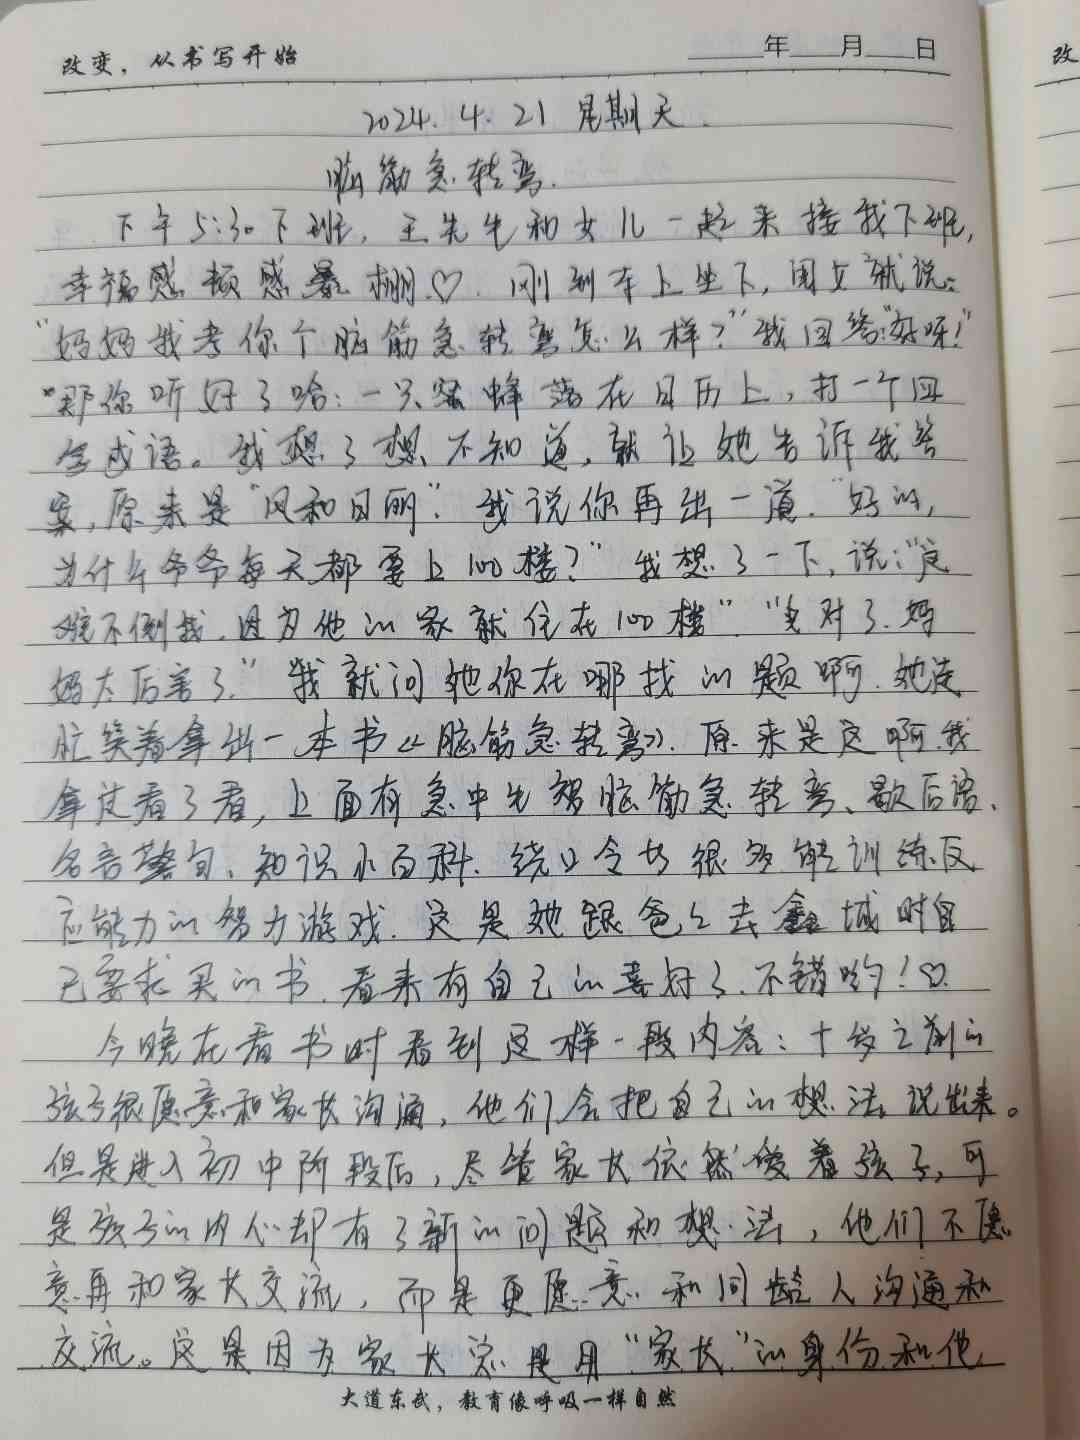 改变，从书写开始
年 月 日
2024. 4. 21 星期天.
脑筋急转弯.
下午5:30下班，王先生和女儿一起来接我下班，
幸福感顿感暴棚♡. 刚到车上坐下，闺女就说：
“妈妈我考你个脑筋急转弯怎么样？”我回答：“好呀！”
“那你听好了哈：一只蜜蜂落在日历上，打一个四
字成语。我想了想不知道，就让她告诉我答
案，原来是“风和日丽”. 我说你再出一道. “好的，
为什么爷爷每天都要上100楼？”我想了一下，说：“这
难不倒我. 因为他的家就住在100楼”. “
对了. 妈
妈太厉害了.”我就问她你在哪找的题啊. 她连
忙笑着拿出一本书《脑筋急转弯》. 原来是这啊. 我
拿过看了看，上面有急中生智脑筋急转弯、歇后语、
名言警句、知识小百科. 绕口令等很多能训练反
应能力的智力游戏. 这是她跟爸爸去鑫城时自
己要求买的书. 看来有自己的喜好了. 不错哟！♡.
今晚在看书时看到这样一段内容：十岁之前的
孩子很愿意和家长沟通，他们会把自己的想法说出来。
但是进入初中阶段后，尽管家长依然爱着孩子，可
是孩子的内心却有了新的问题和想法，他们不愿
意再和家长交流，而是更愿意和同龄人沟通和
交流。这是因为家长总是用“家长”的身份和他
大道东武，教育像呼吸一样自然
改